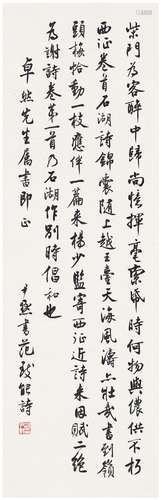 柴門為客醉中歸尚憶揮毫索紙時何物與儂供不朽
西征卷首石湖詩錦囊隨上越王臺天海風濤亦壯哉書到嶺
頭梅恰動一枝應伴一篇來楊少監寄西征近詩來因賦二絕
為謝詩卷第一首乃石湖作別時倡和也
卓然先生屬書即正
尹默書范致能詩